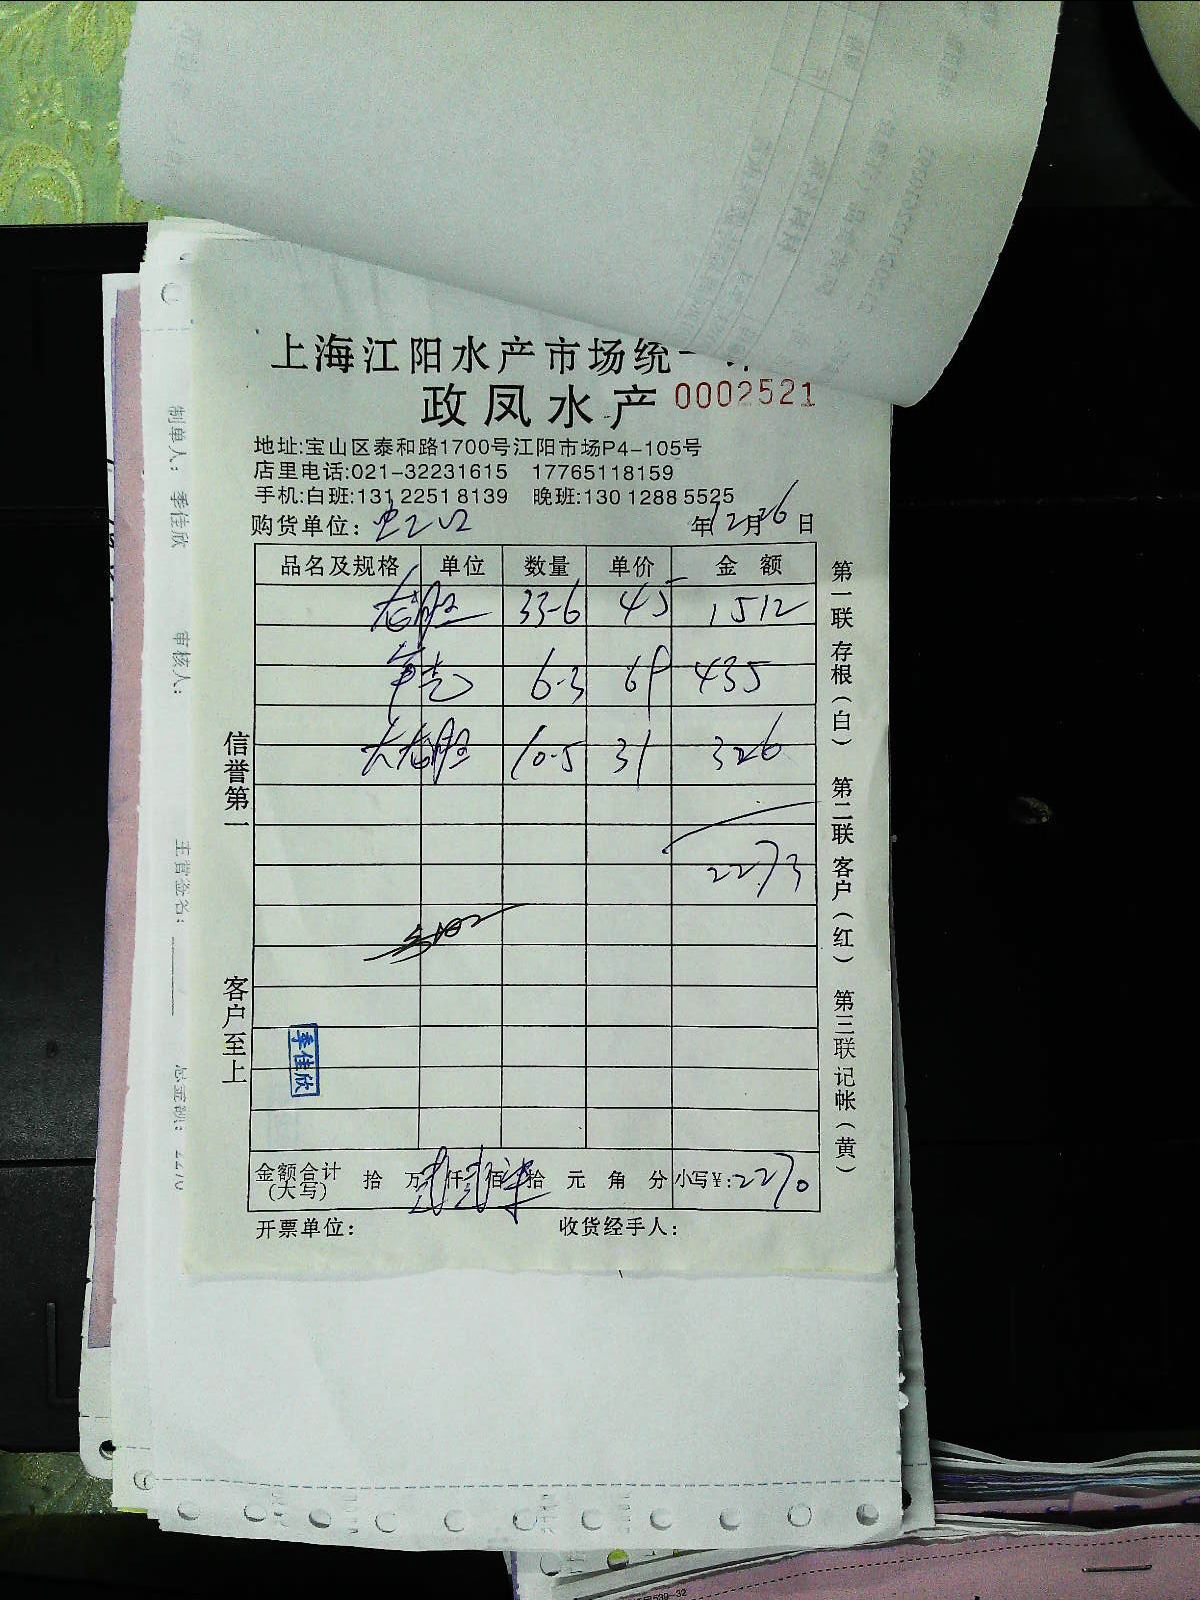 上海江阳水产市场统一
政凤水产 0002521
地址:宝山区泰和路1700号江阳市场P4-105号
店里电话:021-32231615 17765118159
手机:白班:131 2251 8139 晚班:130 1288 5525
购货单位: 年12月26日
品名及规格 单位 数量 单价 金额
33-6 45 1512
6-3 69 435
10-5 31 326
2273
季佳欣
金额合计(大写) 拾 万 贰 仟 贰 佰 柒 拾 元 角 分 小写¥:2270
开票单位: 收货经手人:
信誉第一 客户至上
第一联 存根(白) 第二联 客户(红) 第三联 记帐(黄)
制单人: 季佳欣 审核人: 主管签名: